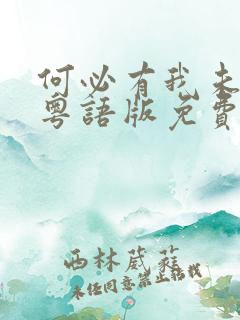 何必有我未
粵語版免費
西林葳蕤
未经同意禁止搭我